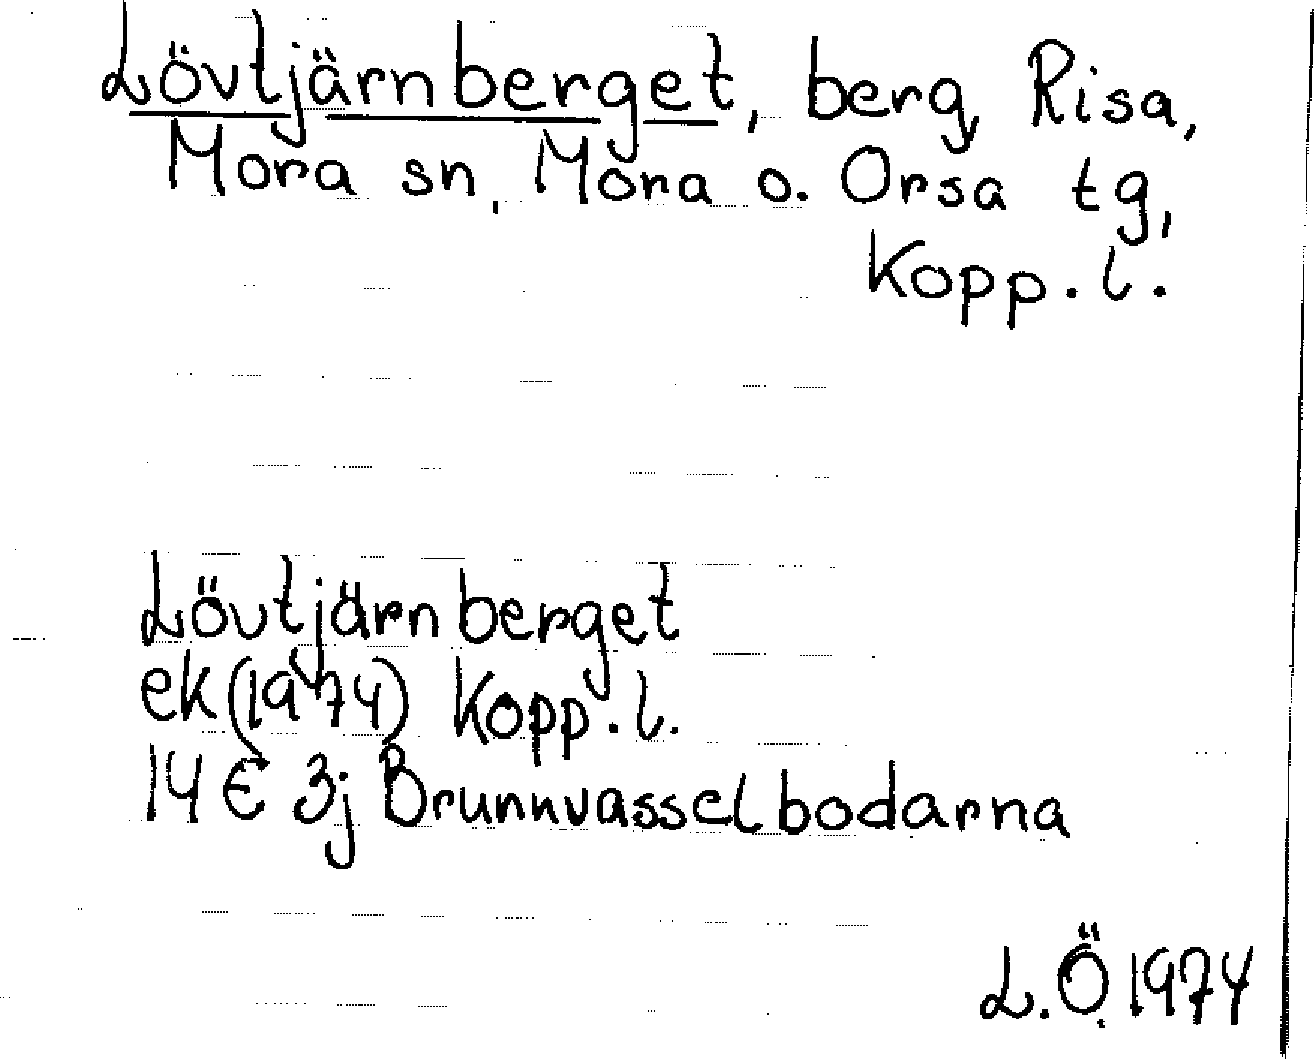 Lövtjärnberget, berg, Risa,
Mora sn, Mora o. Orsa tg,
Kopp. l.
Lövtjärnberget
ek (1974) Kopp. l.
14 E 3j Brunnvasselbodarna
L. Ö. 1974